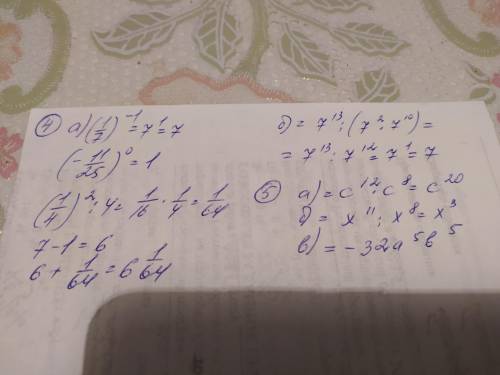 ④ а) (1/7)^-1 = 7^1 = 7
(-11/25)^0 = 1
(1/4)^2 : 4 = 1/16 · 1/4 = 1/64
7 - 1 = 6
6 + 1/64 = 6 1/64
б) = 7^13 : (7^2 · 7^10) =
= 7^13 : 7^12 = 7^1 = 7
⑤ а) = c^12 · c^8 = c^20
б) = x^11 : x^8 = x^3
в) = -32a^5b^5